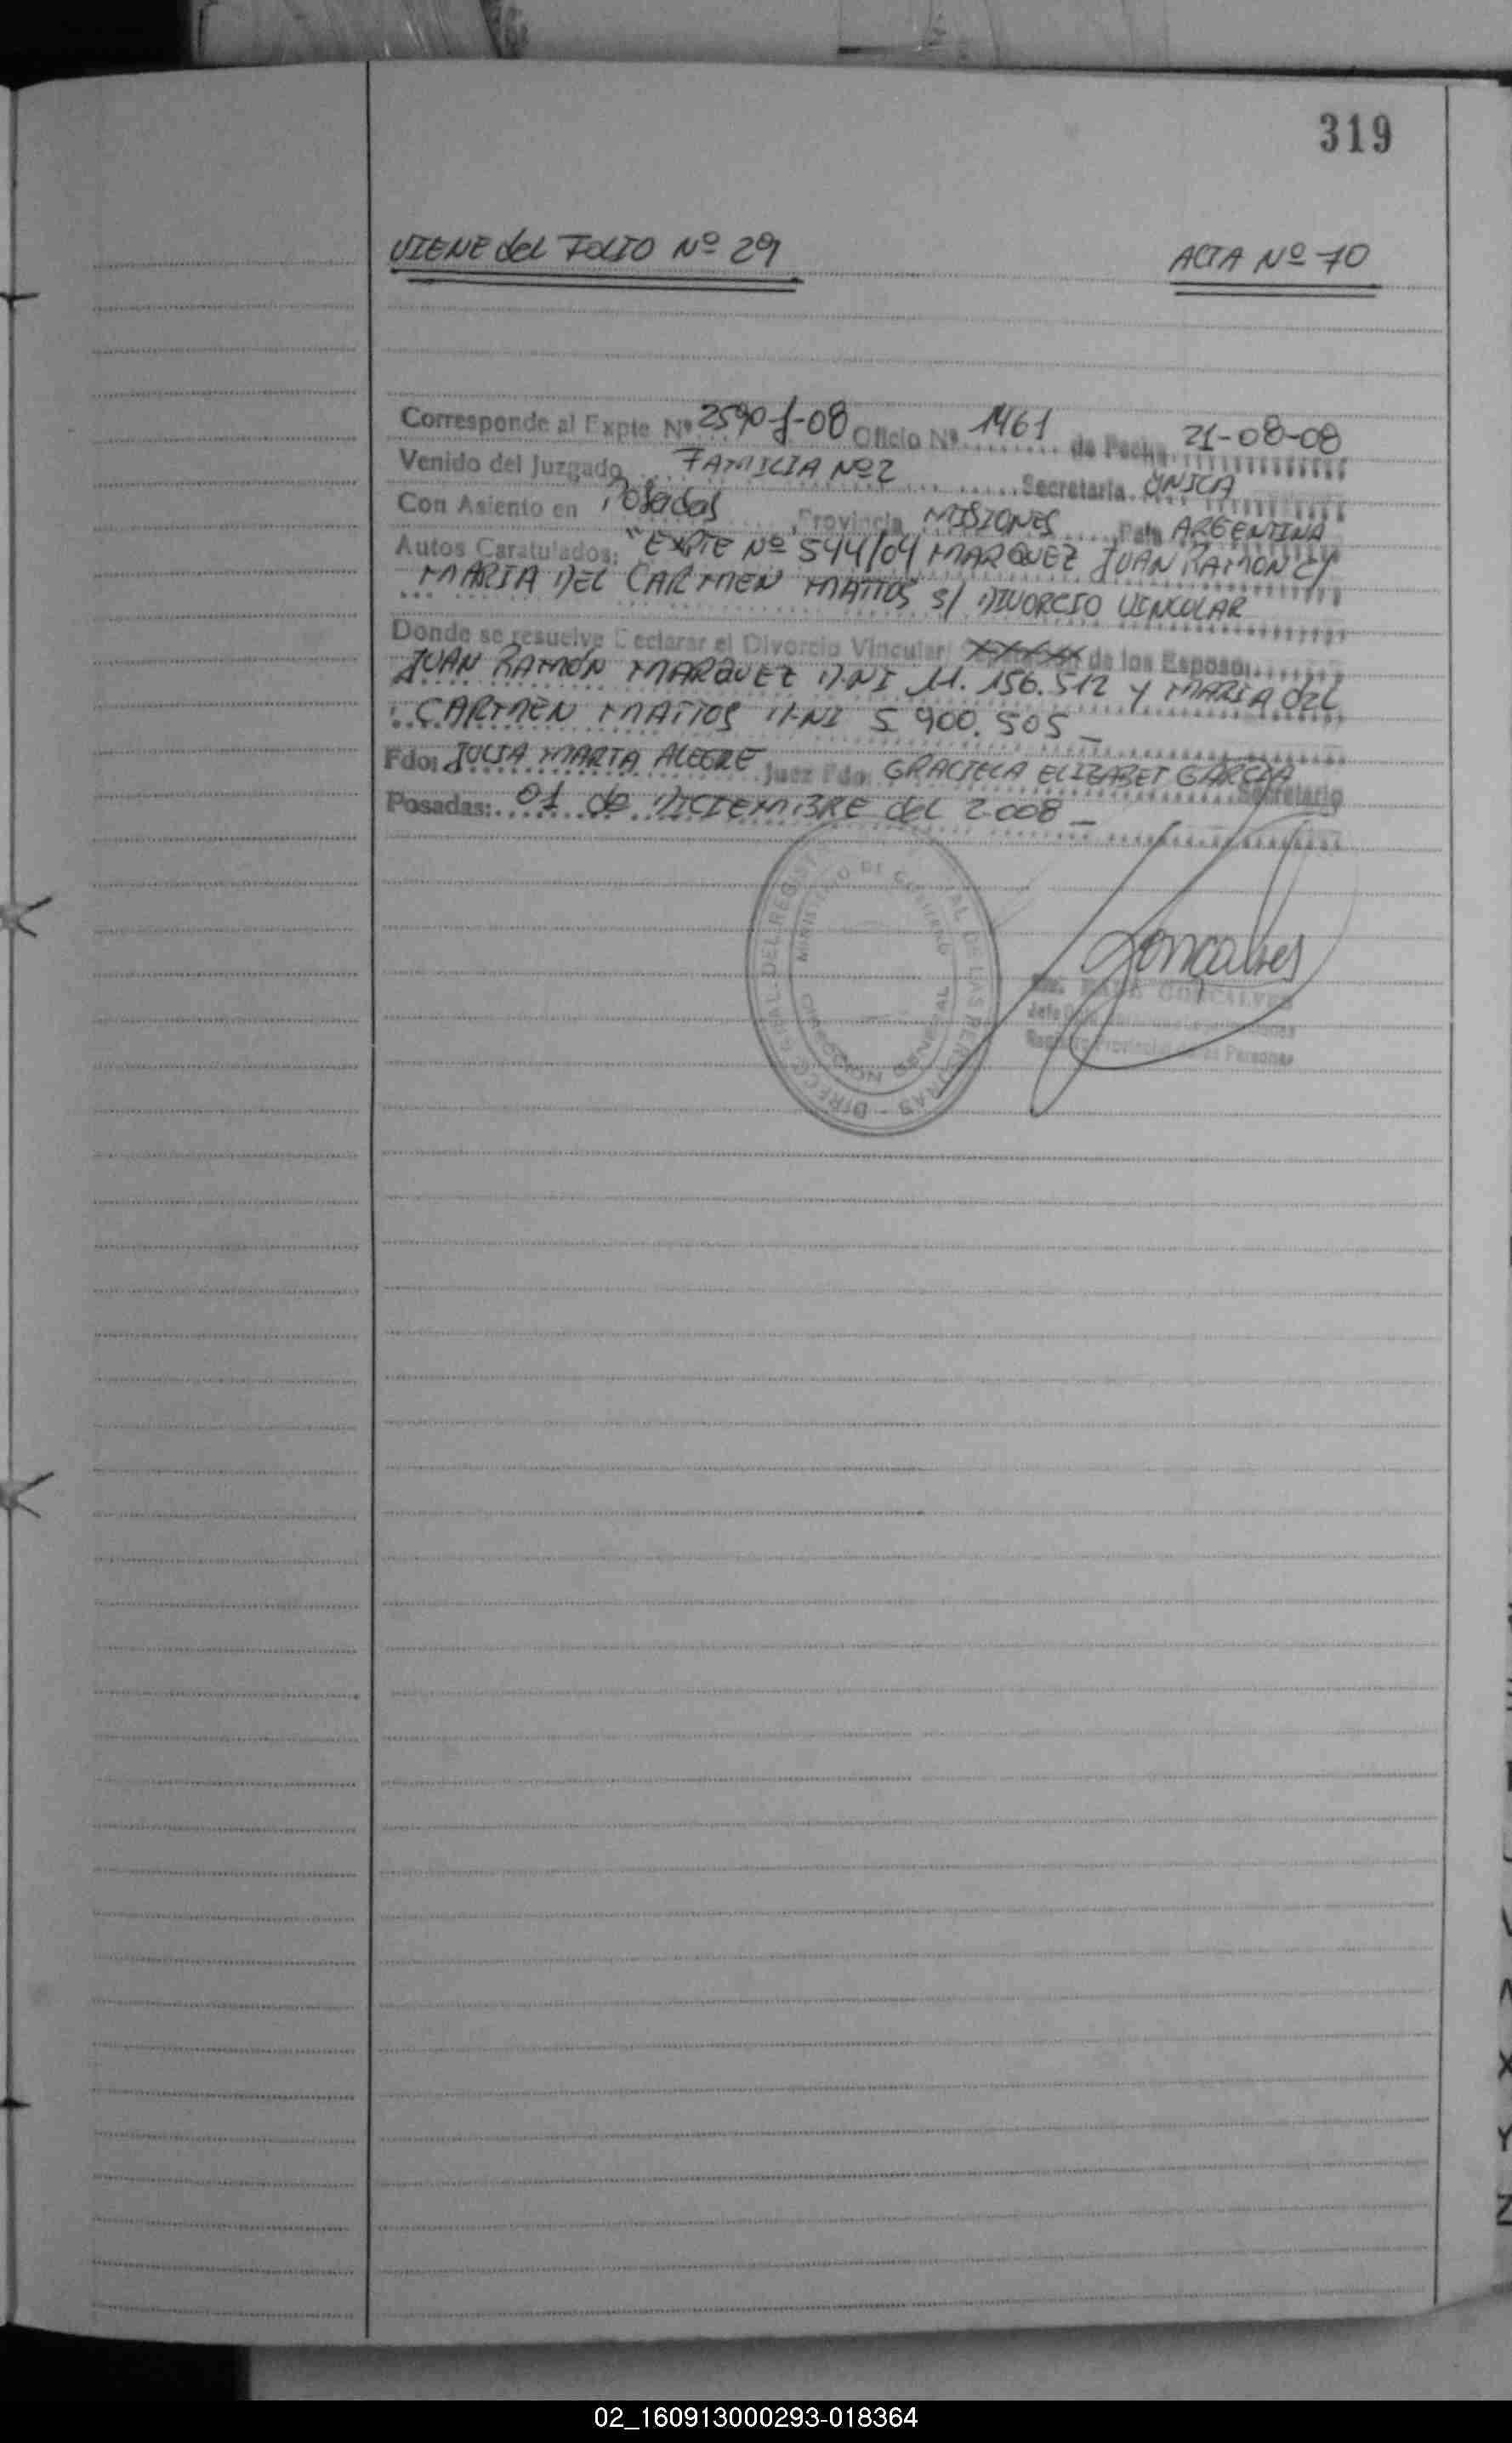 319
VIENE del FOLIO Nº 29 ACTA Nº 70
Corresponde al Expte Nº 2590-J-08 Oficio Nº 1461 de Fecha 21-08-08
Venido del Juzgado FAMILIA Nº2 Secretaria UNICA
Con Asiento en Posadas Provincia MISIONES Pais ARGENTINA
Autos Caratulados: "EXPTE Nº 544/04 MARQUEZ JUAN RAMON C/
MARIA DEL CARMEN MATTOS S/ DIVORCIO VINCULAR
Donde se resuelve Declarar el Divorcio Vincular de los Esposos
JUAN RAMÓN MARQUEZ DNI 11.156.512 Y MARIA DEL
CARMEN MATTOS DNI 5 900.505 _
Fdo: JULIA MARTA ALEGRE Juez Fdo: GRACIELA ELIZABET GARCIA
Secretario
Posadas: 01 de DICIEMBRE del 2.008 _
MINISTERIO DE GOBIERNO
DIRECCION GENERAL
DE LAS PERSONAS
Goncalves
GONCALVES
Jefe
Registro Provincial de las Personas
X
Y
Z
02_160913000293-018364